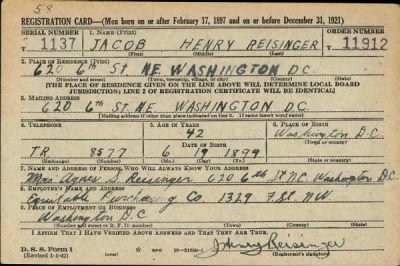 58
REGISTRATION CARD—(Men born on or after February 17, 1897 and on or before December 31, 1921)
SERIAL NUMBER 1. NAME (Print) ORDER NUMBER
T 1137 JACOB HENRY REISINGER T 11912
(First) (Middle) (Last)
2. PLACE OF RESIDENCE (Print)
620 6th St. N.E. WASHINGTON D.C.
(Number and street) (Town, township, village, or city) (County) (State)
[THE PLACE OF RESIDENCE GIVEN ON THE LINE ABOVE WILL DETERMINE LOCAL BOARD
JURISDICTION; LINE 2 OF REGISTRATION CERTIFICATE WILL BE IDENTICAL]
3. MAILING ADDRESS
620 6th St. NE WASHINGTON D.C.
[Mailing address if other than place indicated on line 2. If same insert word same]
4. TELEPHONE 5. AGE IN YEARS 6. PLACE OF BIRTH
42 Washington D.C.
DATE OF BIRTH (Town or county)
TR 8577 6 19 1899
(Exchange) (Number) (Mo.) (Day) (Yr.) (State or country)
7. NAME AND ADDRESS OF PERSON WHO WILL ALWAYS KNOW YOUR ADDRESS
Mrs. Agnes Reisinger 620 6th St. N.E. Washington D.C.
8. EMPLOYER'S NAME AND ADDRESS
Equitable Purchasing Co. 1329 F. St. N.W.
9. PLACE OF EMPLOYMENT OR BUSINESS
Washington D.C.
(Number and street or R. F. D. number) (Town) (County) (State)
I AFFIRM THAT I HAVE VERIFIED ABOVE ANSWERS AND THAT THEY ARE TRUE.
D. S. S. Form 1
(Revised 1-1-42) (over)
J Henry Reisinger
(Registrant's signature)